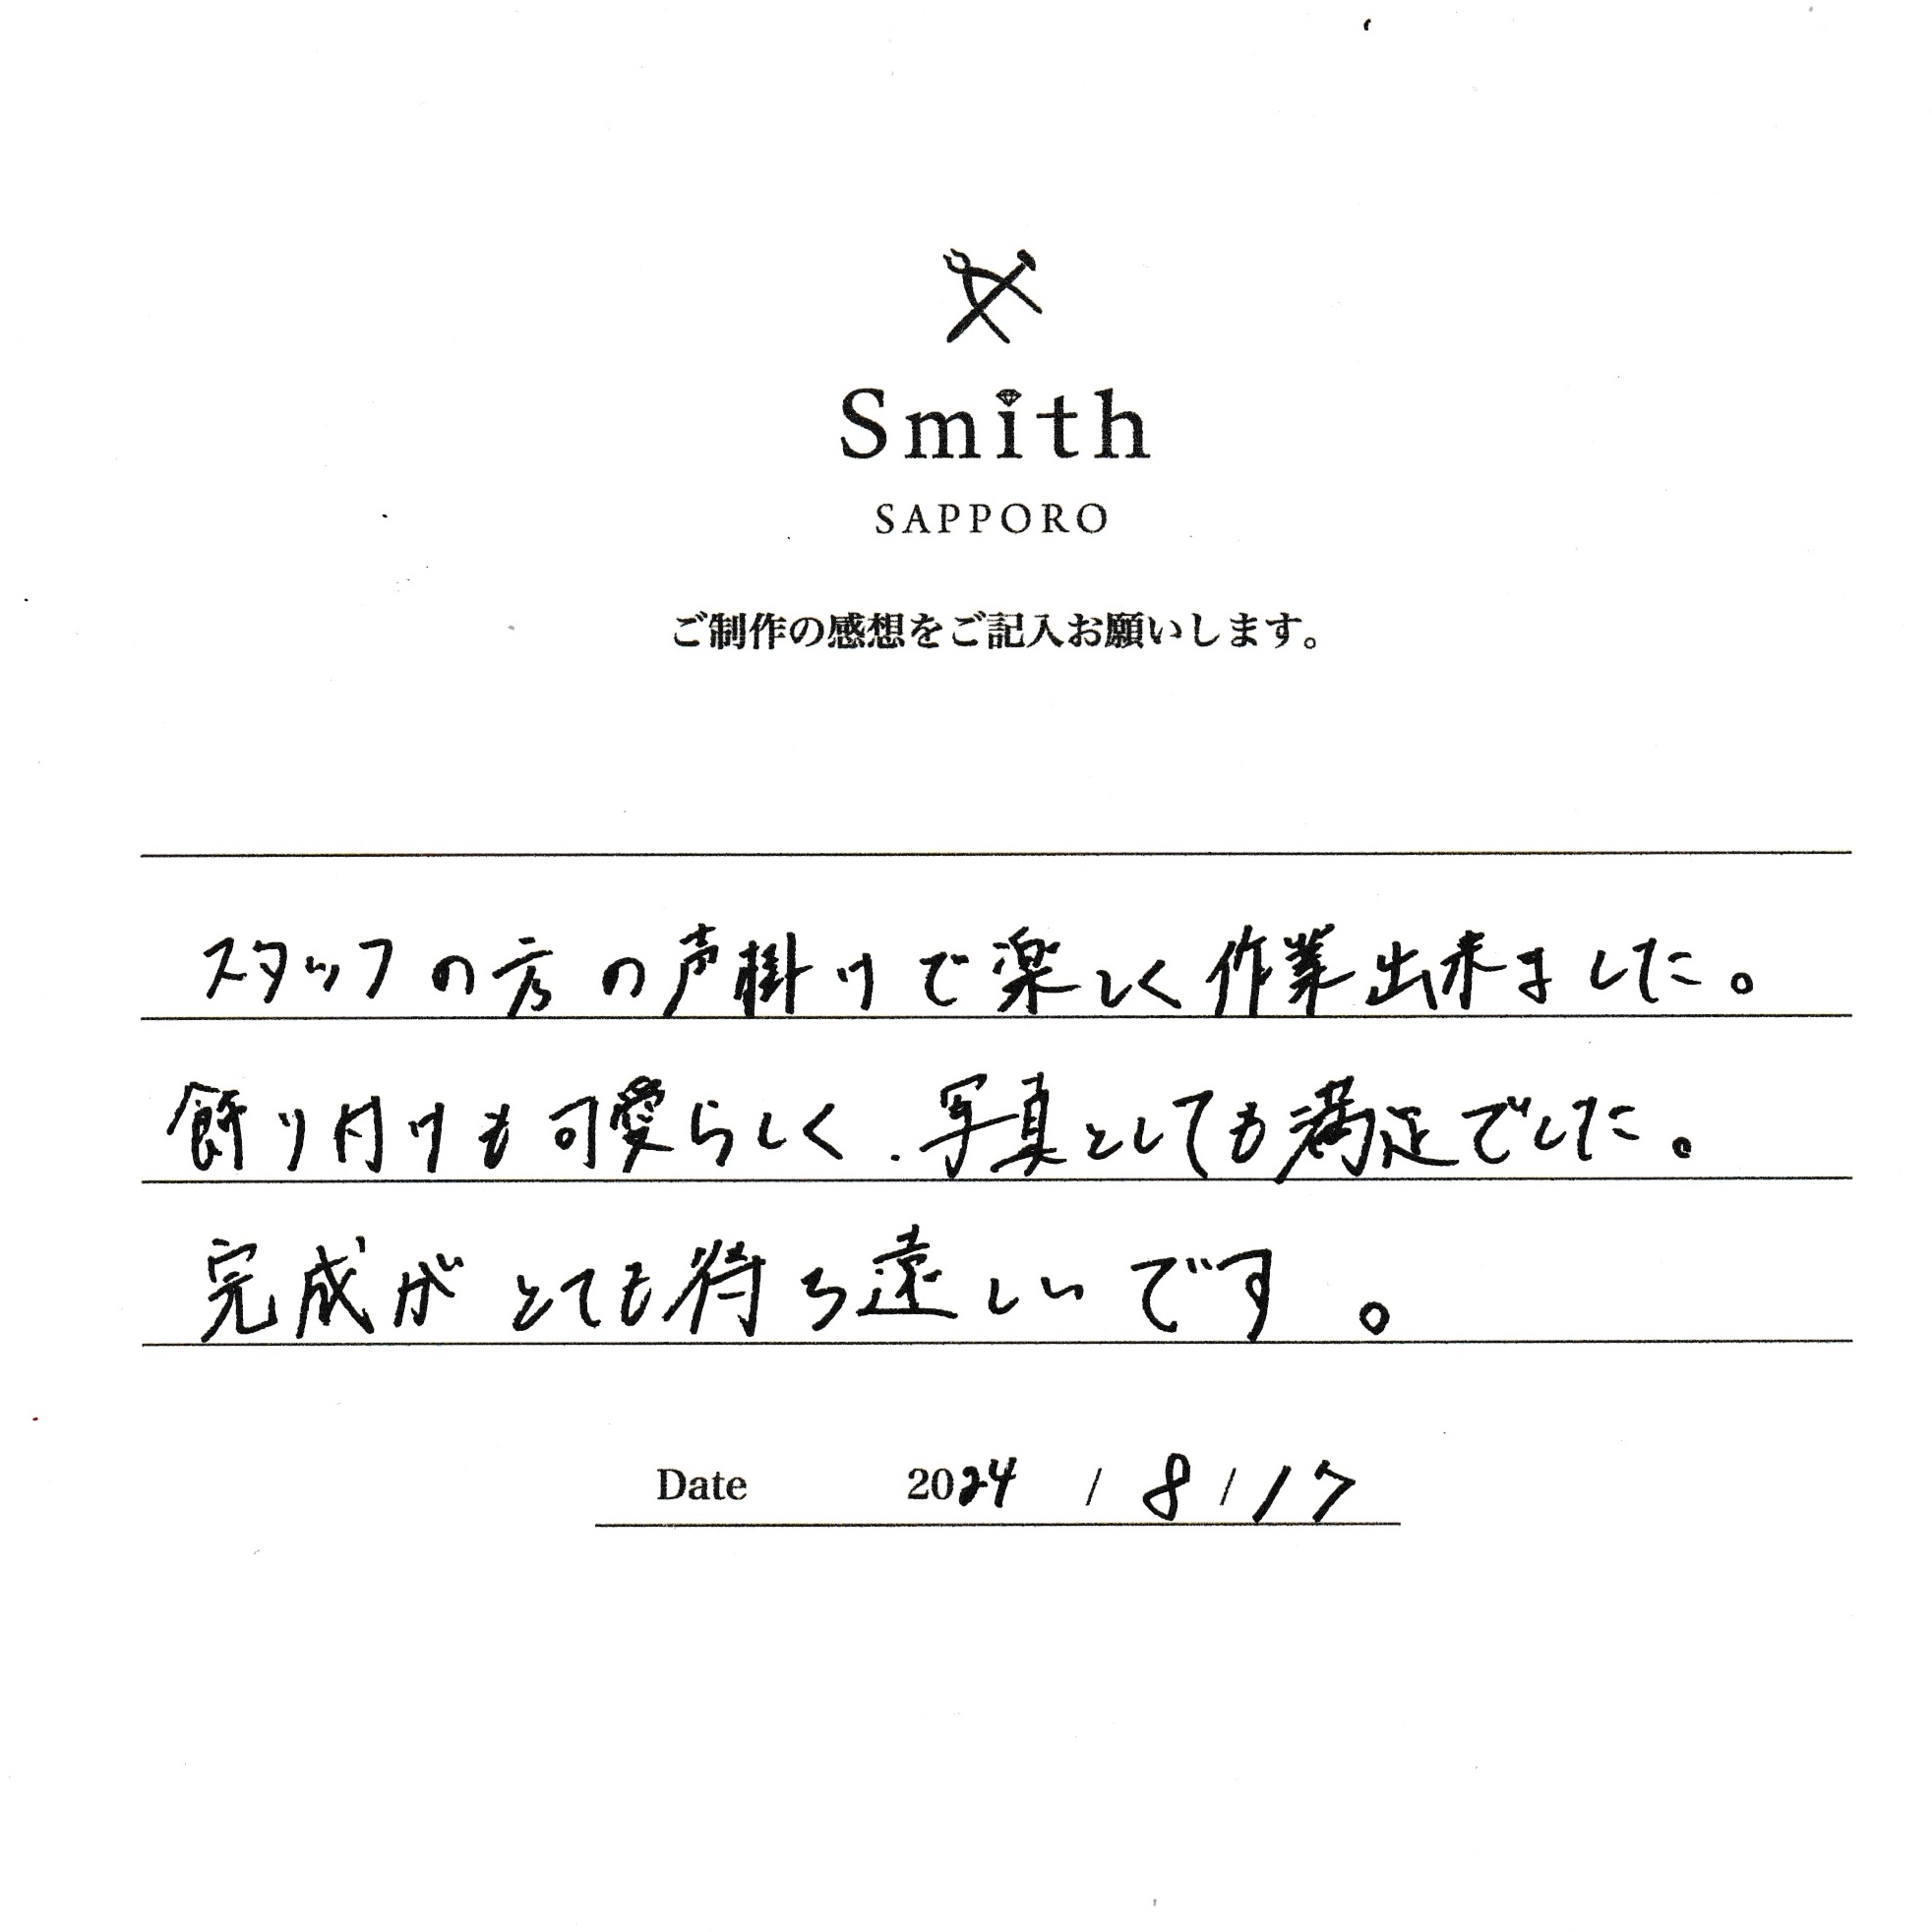 Smith
SAPPORO
ご制作の感想をご記入お願いします。
スタッフの方の声掛けで楽しく作業出来ました。
飾り付けも可愛らしく、写真としても満足でした。
完成がとても待ち遠しいです。
Date 2024 / 8 / 17